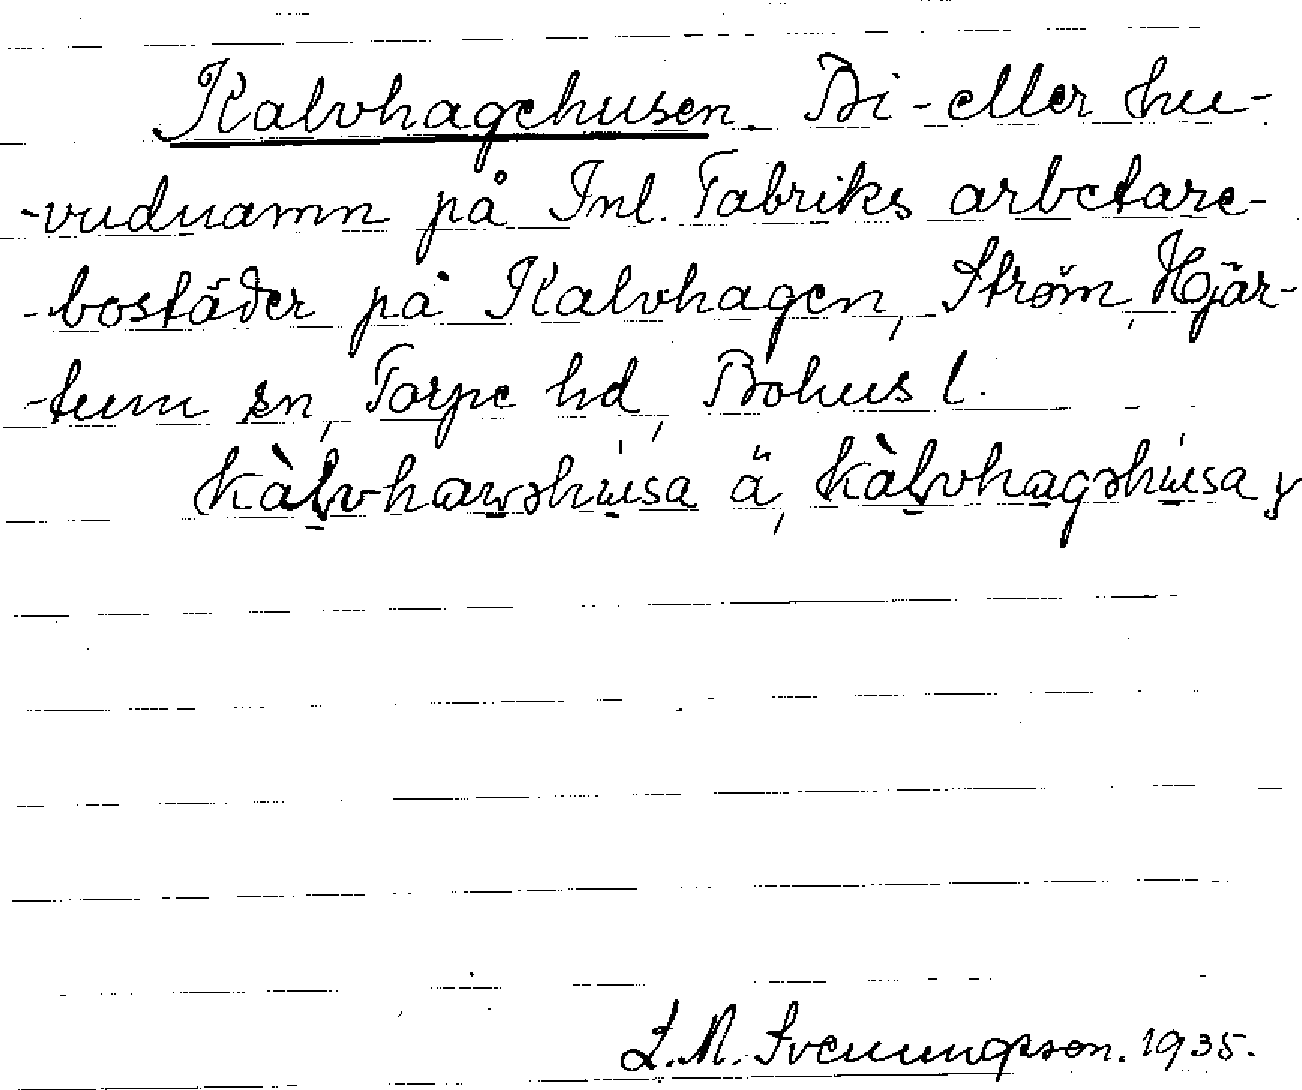 Kalvhagehusen. Bi- eller hu-
-vudnamn på Inl. Fabriks arbetare-
-bostäder på Kalvhagen, Ström, Hjär-
-tum sn, Torpe hd, Bohus l.
kàlvhawəhusa ä, kàlvhagəhusa y
L. M. Svenungsson. 1935.